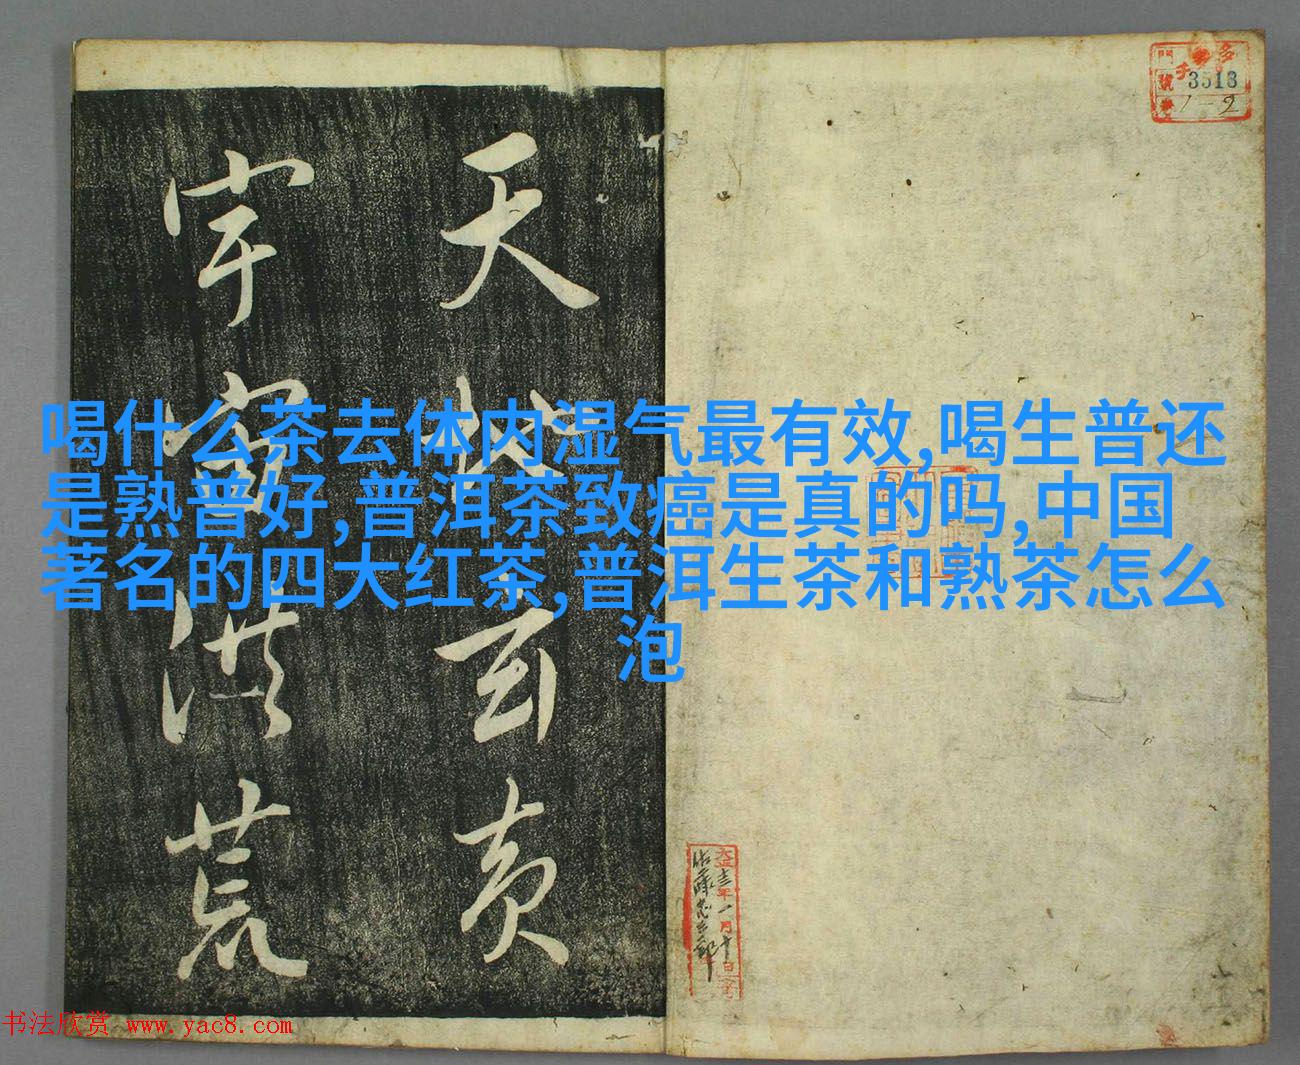 喝什么茶去体内湿气最有效,喝生普还
是熟普好,普洱茶致癌是真的吗,中国
著名的四大红茶,普洱生茶和熟茶怎么
泡
天地玄黄
宇宙洪荒
3513
1-2
大正十三年一月十日
书法欣赏 www.yac8.com